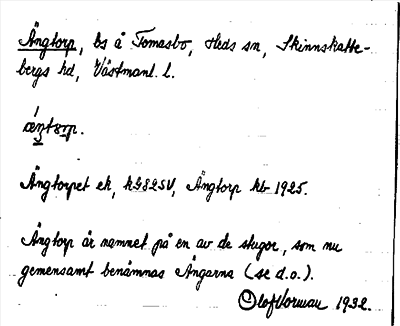 Ängtorp, bs å Tomasbo, Heds sn, Skinnskatte-
bergs hd, Västmanl. l.
Ängtorpet ek, hG82SV, Ängtorp kb 1925.
Ängtorp är namnet på en av de stugor, som nu
gemensamt benämnas Ängarna (se d.o.).
Olof Norman 1932.